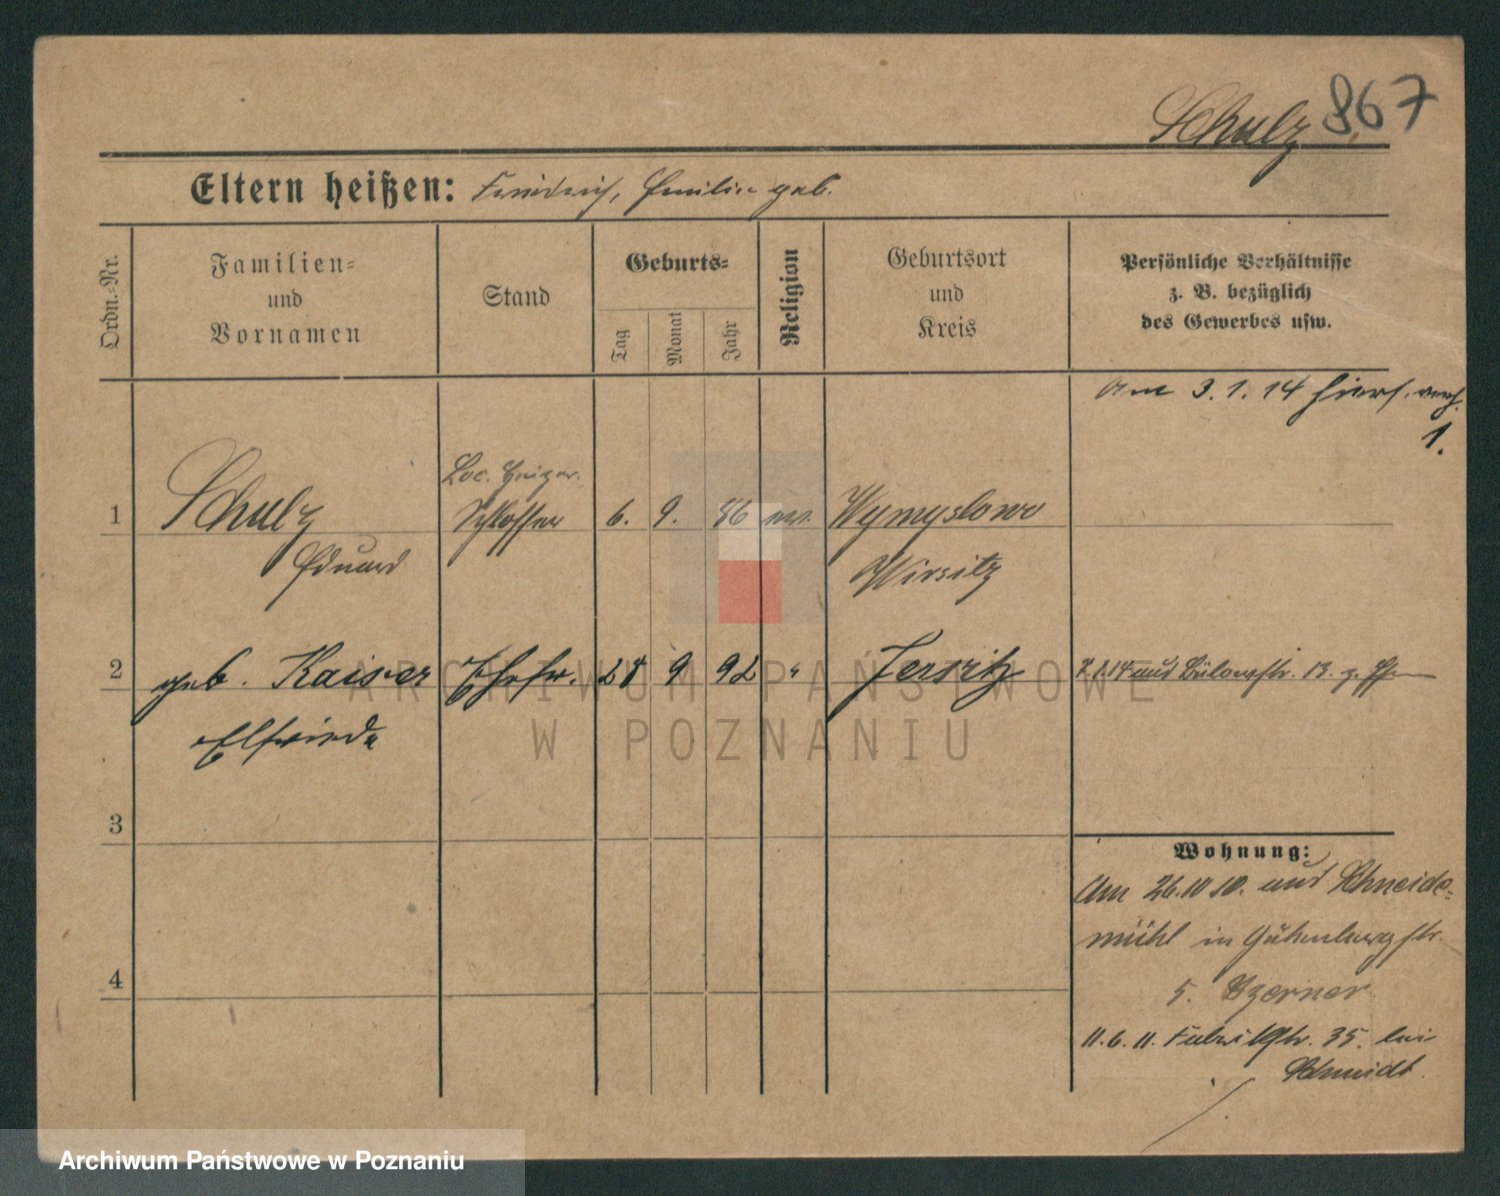 Schulz 867
Eltern heißen: Friedrich, Emilie geb.
Ordn.-Nr.
Familien-
und
Vornamen
Stand
Geburts-
Tag
Monat
Jahr
Religion
Geburtsort
und
Kreis
Persönliche Verhältnisse
z. B. bezüglich
des Gewerbes usw.
Am 3.1.14 hiers. verh.
1.
Loc. Heizer.
1 Schulz Schlosser 6. 9. 86 ev. Wymyslowo
Eduard Wirsitz
2 geb. Kaiser Ehefr. 28 9 92 " Jersitz
2.1.14 aus Bülowstr. 13.
Elfriede
ARCHIWUM PAŃSTWOWE
W POZNANIU
3
4
Wohnung:
Am 26.10.10. aus Schneide-
mühl in
5. Czerner
11.6.11. Fabrikstr. 35. bei
Schmidt.
Archiwum Państwowe w Poznaniu